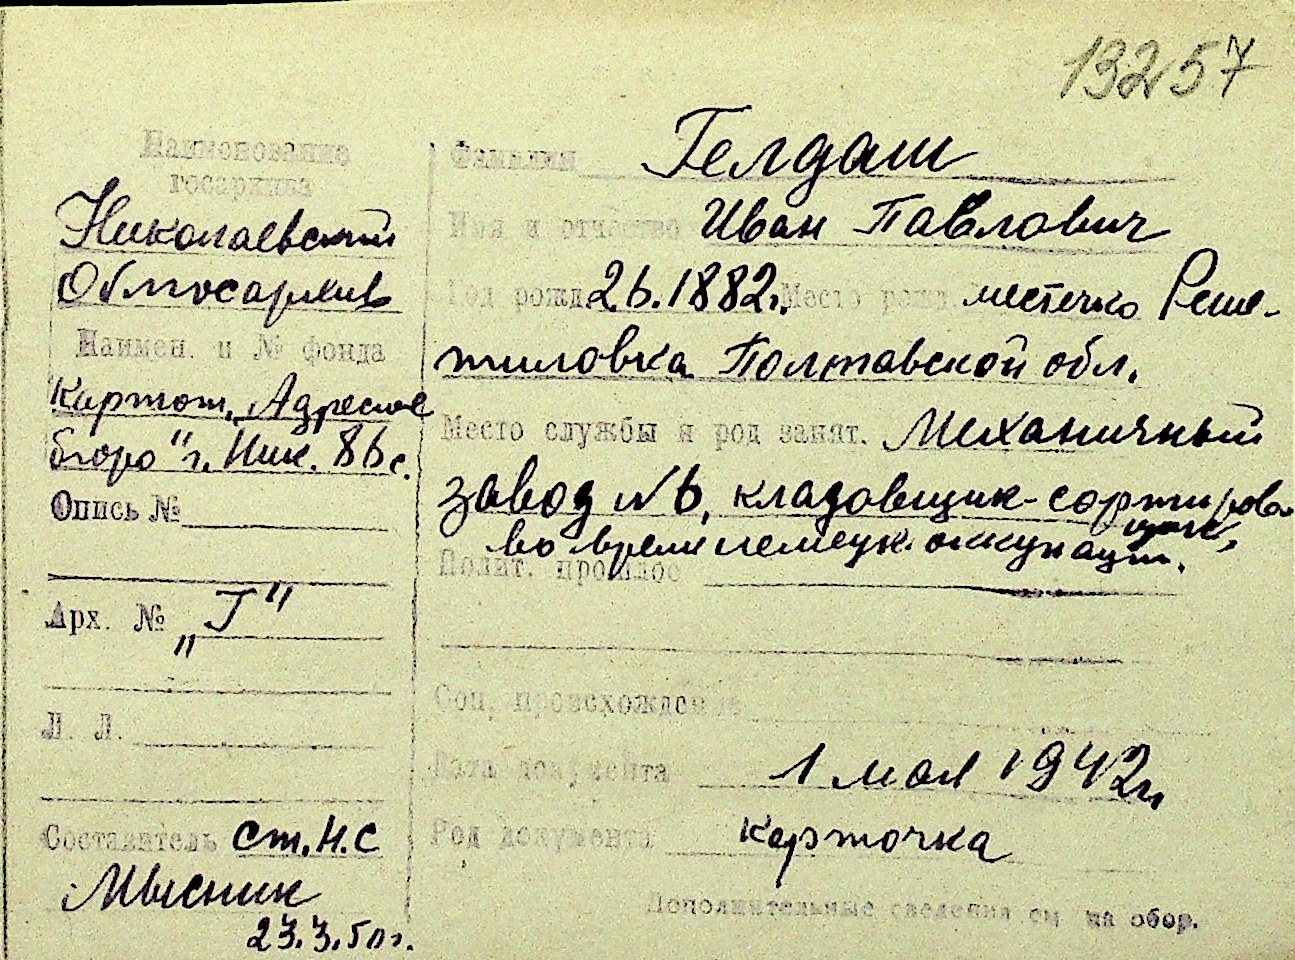 13257
Наименование
госархива
Николаевский
Облгосархив
Наимен. и № фонда
Картот. Адресное
бюро" г. Ник. 86 с.
Опись №
Арх. № „Г"
Л. Л.
Составитель ст. н. с
Мысник
23.3.50 г.
Фамилия Гелдаш
Имя и отчество Иван Павлович
Год рожд. 26.1882г. Место рожд. местечко Реше-
тиловка Полтавской обл.
Место службы и род занят. Механичный
завод №6, кладовщик-сортирова
щик,
во время немецк. оккупации.
Полит. прошлое
Соц. происхождение
Дата документа 1 мая 1942г.
Род документа карточка
Дополнительные сведения см на обор.